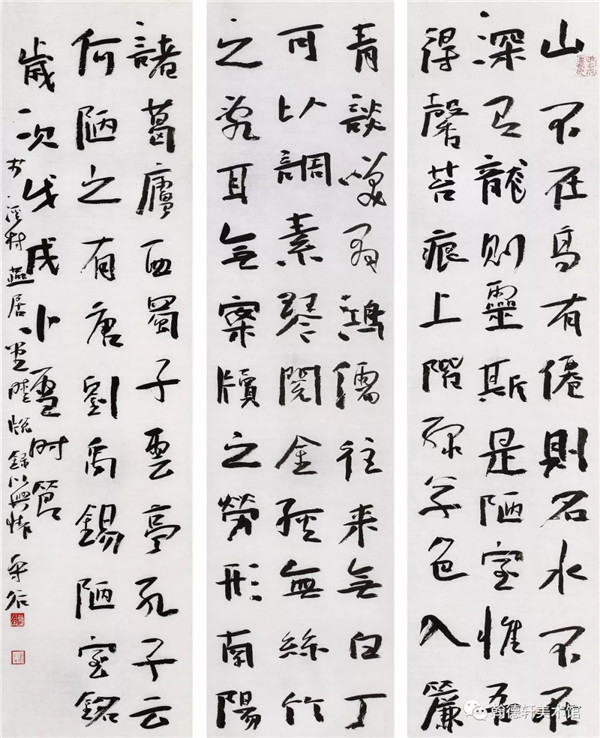 山不在高有僊則名水不在
深有龍則靈斯是陋室惟吾
得馨苔痕上階綠草色入簾
青談笑有鴻儒往来無白丁
可以調素琴閱金經無絲竹
之亂耳無案牘之勞形南陽
諸葛廬西蜀子雲亭孔子云
何陋之有唐劉禹錫陋室銘
歲次戊戌小雪时節
村燕居
翰德轩美术馆